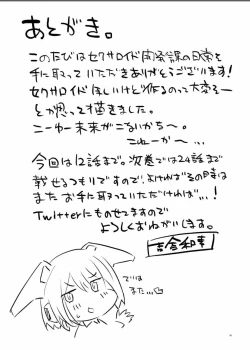 あとがき。
このたびはセクサロイド開発課の日常を
手に取っていただきありがとうございます!
セクサロイドほしいけど作るのって大変そー
とか思って描きました。
こーゆー未来がこないかな〜。
これーかー…
今回は12話まで。次巻では24話まで
載せるつもりですので、よければその時は
またお手に取っていただければ…!
Twitterにものせてますので
よろしくおねがいします。
では
また…